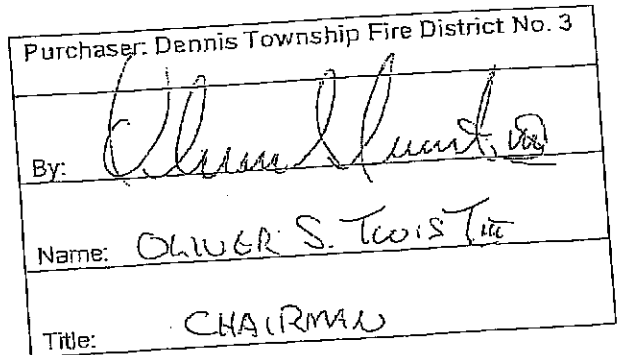 Purchaser: Dennis Township Fire District No. 3
By:
Name: OLIVER S. TWIST III
Title: CHAIRMAN